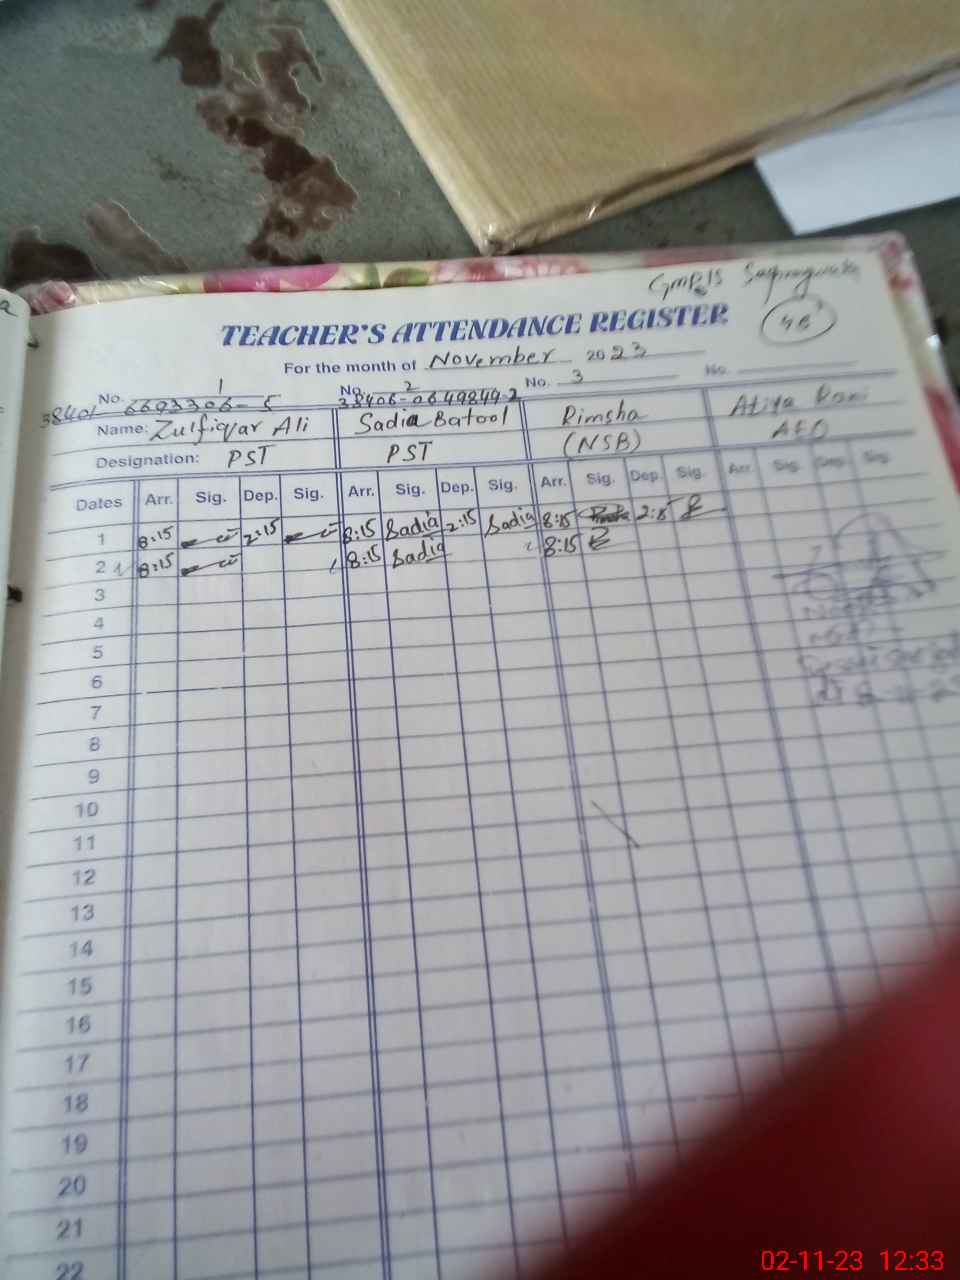 GMPIS
48
TEACHER'S ATTENDANCE REGISTER
For the month of November 2023
No. 1 No. 2 No. 3 No.
38401 6693306-5 38406-0649849-2
Name: Zulfiqar Ali Sadia Batool Rimsha Atiya Rani
Designation: PST PST (NSB) AEO
Dates Arr. Sig. Dep. Sig. Arr. Sig. Dep. Sig. Arr. Sig. Dep. Sig. Arr. Sig. Dep. Sig.
1 8:15 2:15 8:15 Sadia 2:15 Sadia 8:15 2:15
2 8:15 8:15 Sadia 8:15
3
4
5
6
7
8
9
10
11
12
13
14
15
16
17
18
19
20
21
22
02-11-23 12:33